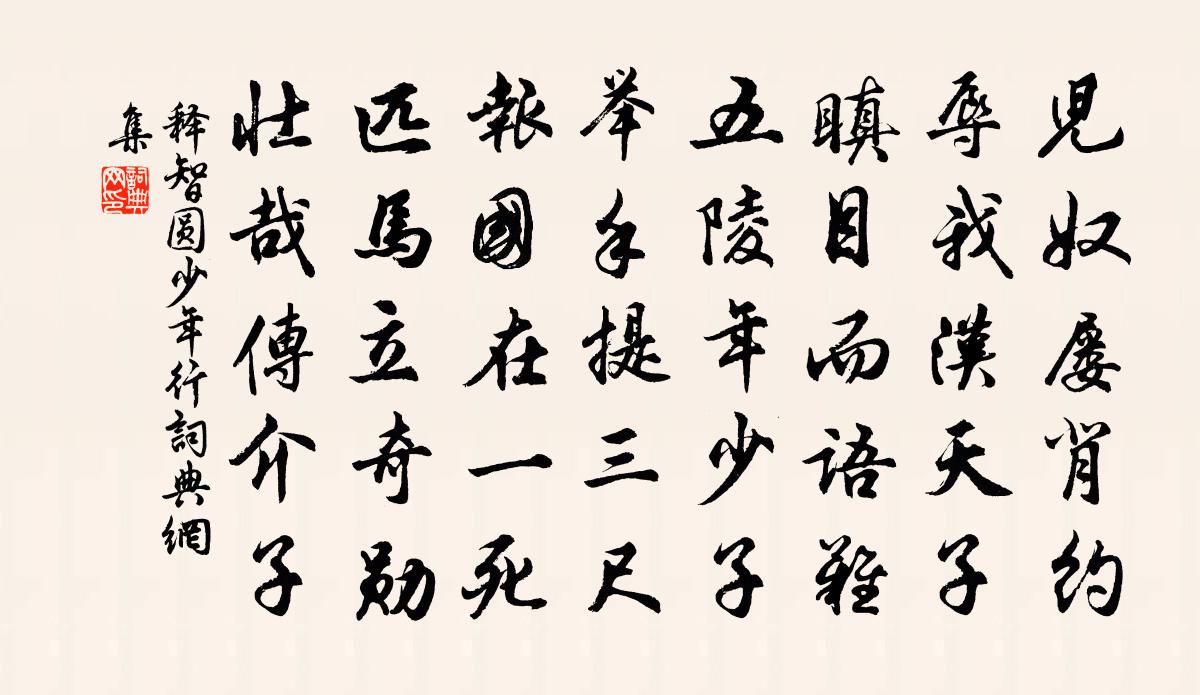 児奴屡肖约
辱我漢天子
瞋目而语難
五陵年少子
举手提三尺
報國在一死
匹馬立奇勋
壮哉傅介子
释智圆少年行詞典網
集
詞典
网印